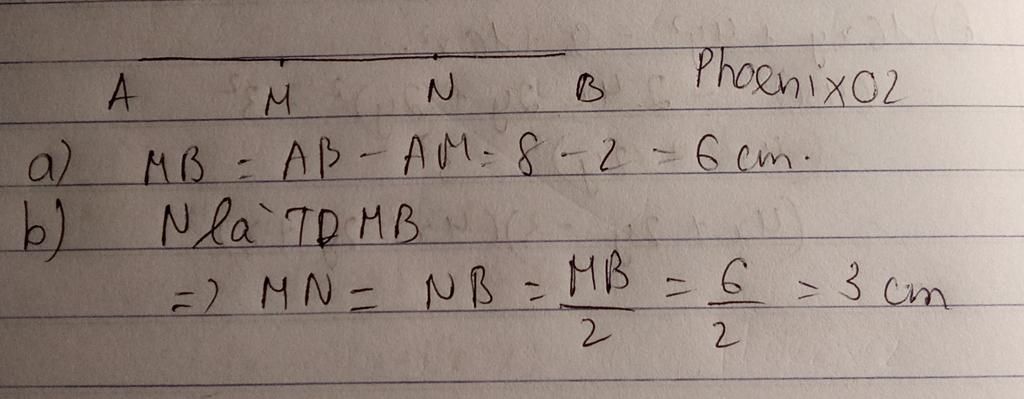 A M N B Phoenix02
a) MB = AB - AM = 8 - 2 = 6 cm.
b) N là TĐ MB
=> MN = NB = MB/2 = 6/2 = 3 cm